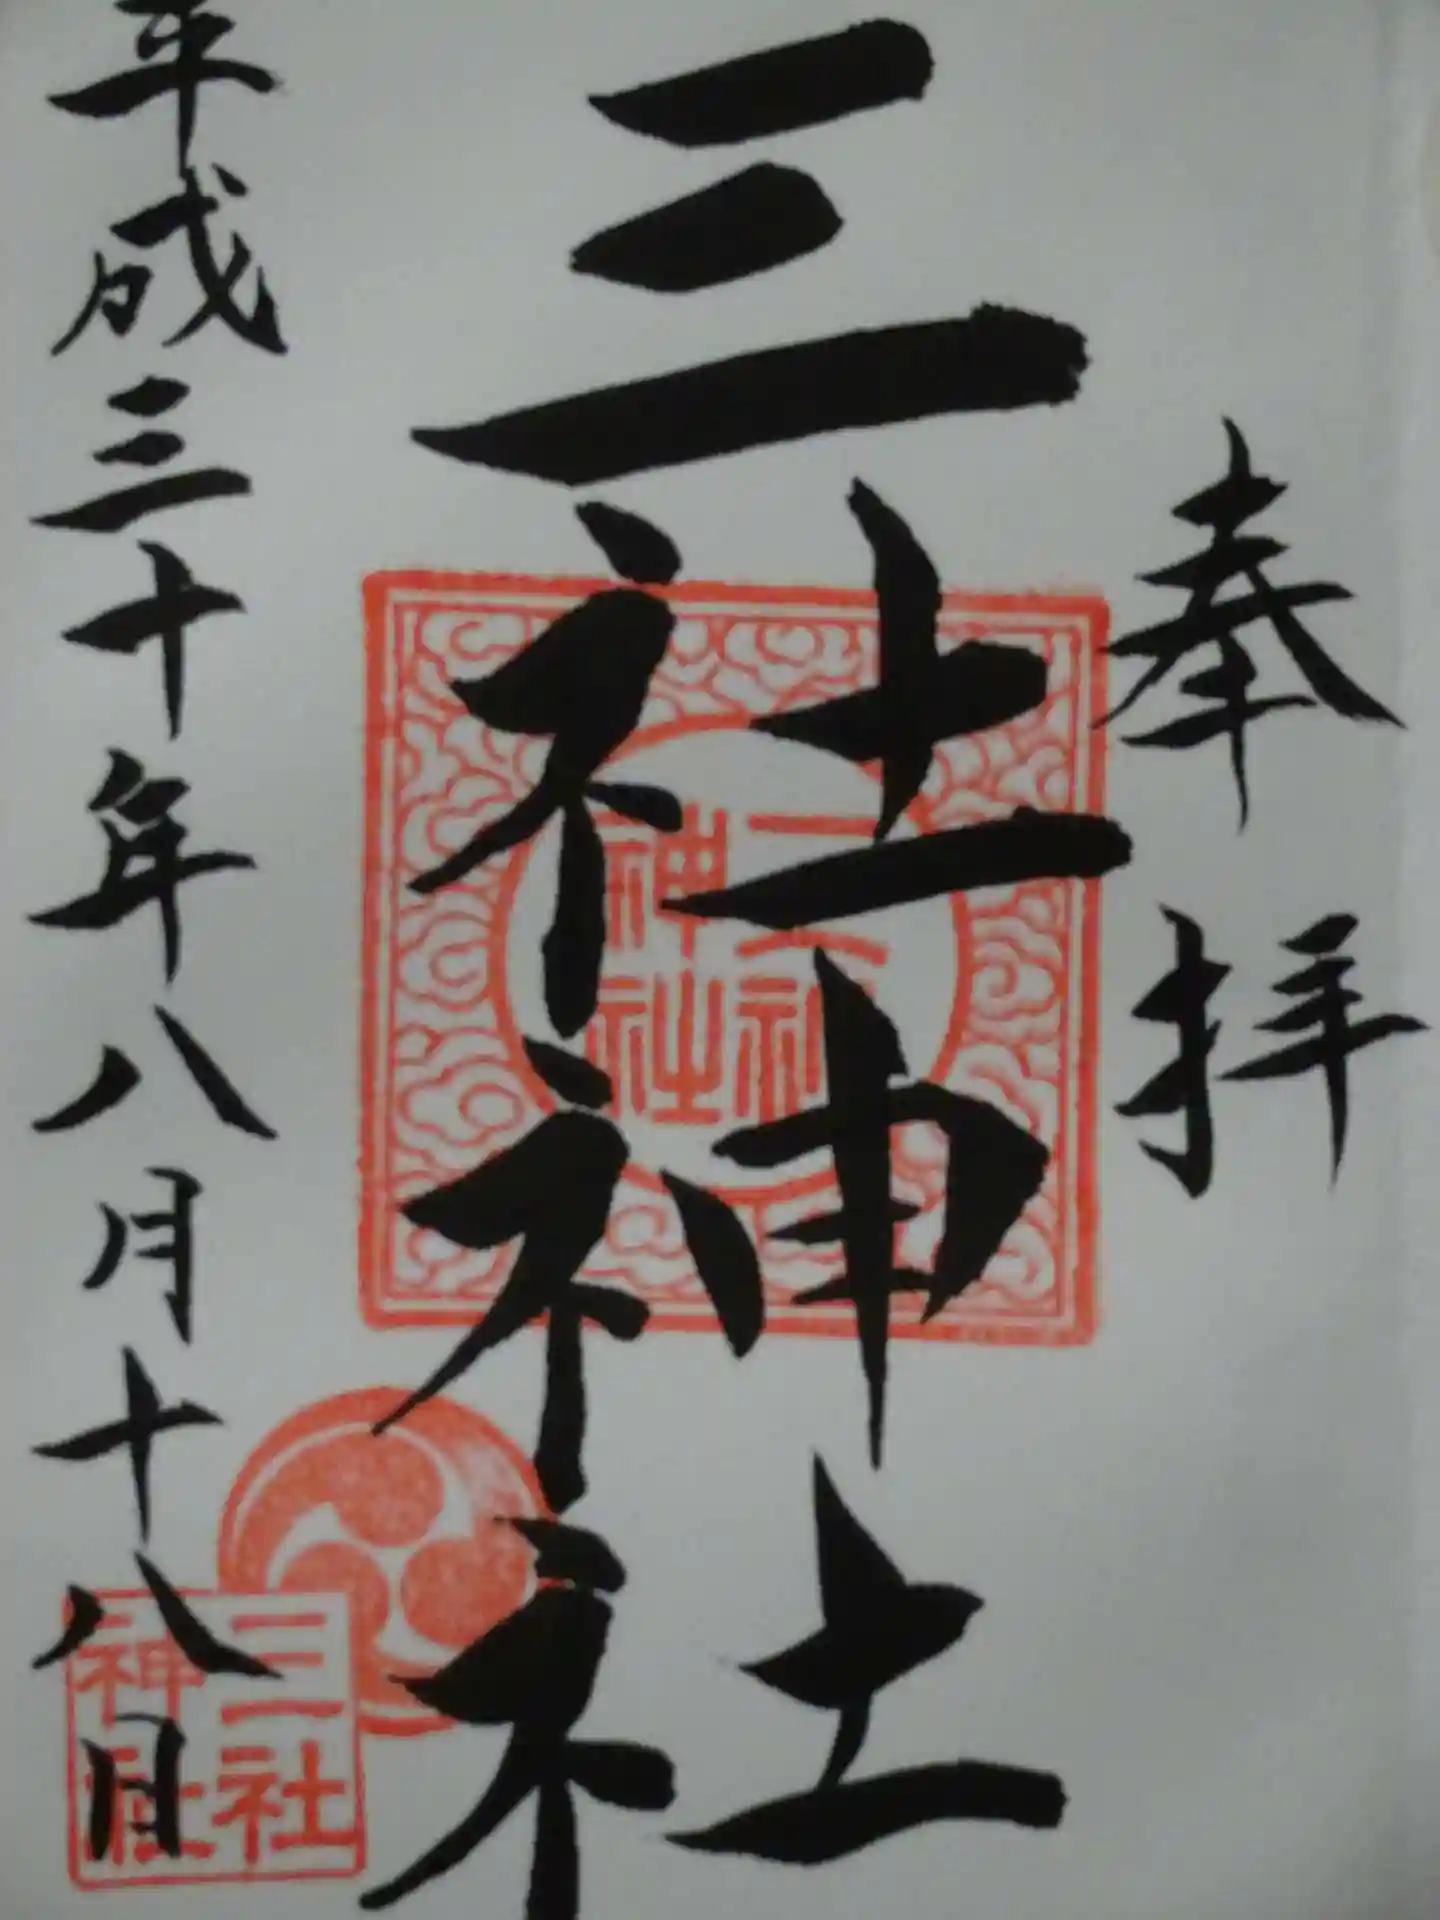 奉拝
三社神社
平成三十年八月十八日
三社神社
三社神社